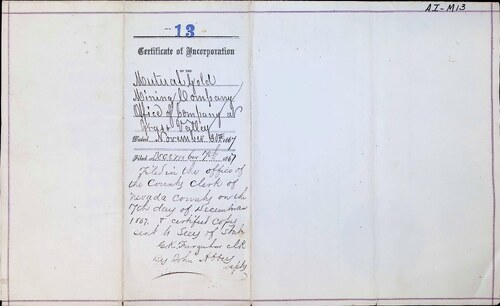 AI-M13
13
Certificate of Incorporation
OF THE
Mutual Gold
Mining Company
Office of Company at
Grass Valley
Dated November 30th 1867
Filed December 17th 1867
Filed in the office of
the County Clerk of
Nevada County on the
17th day of December
1867. & certified copy
sent to Secy of State
Clk
By John Dpty